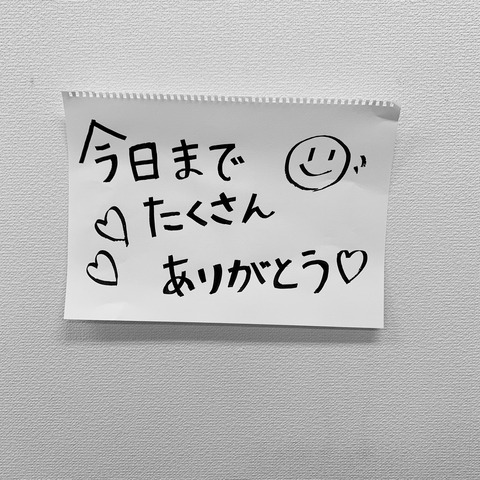 今日まで
たくさん
ありがとう♡